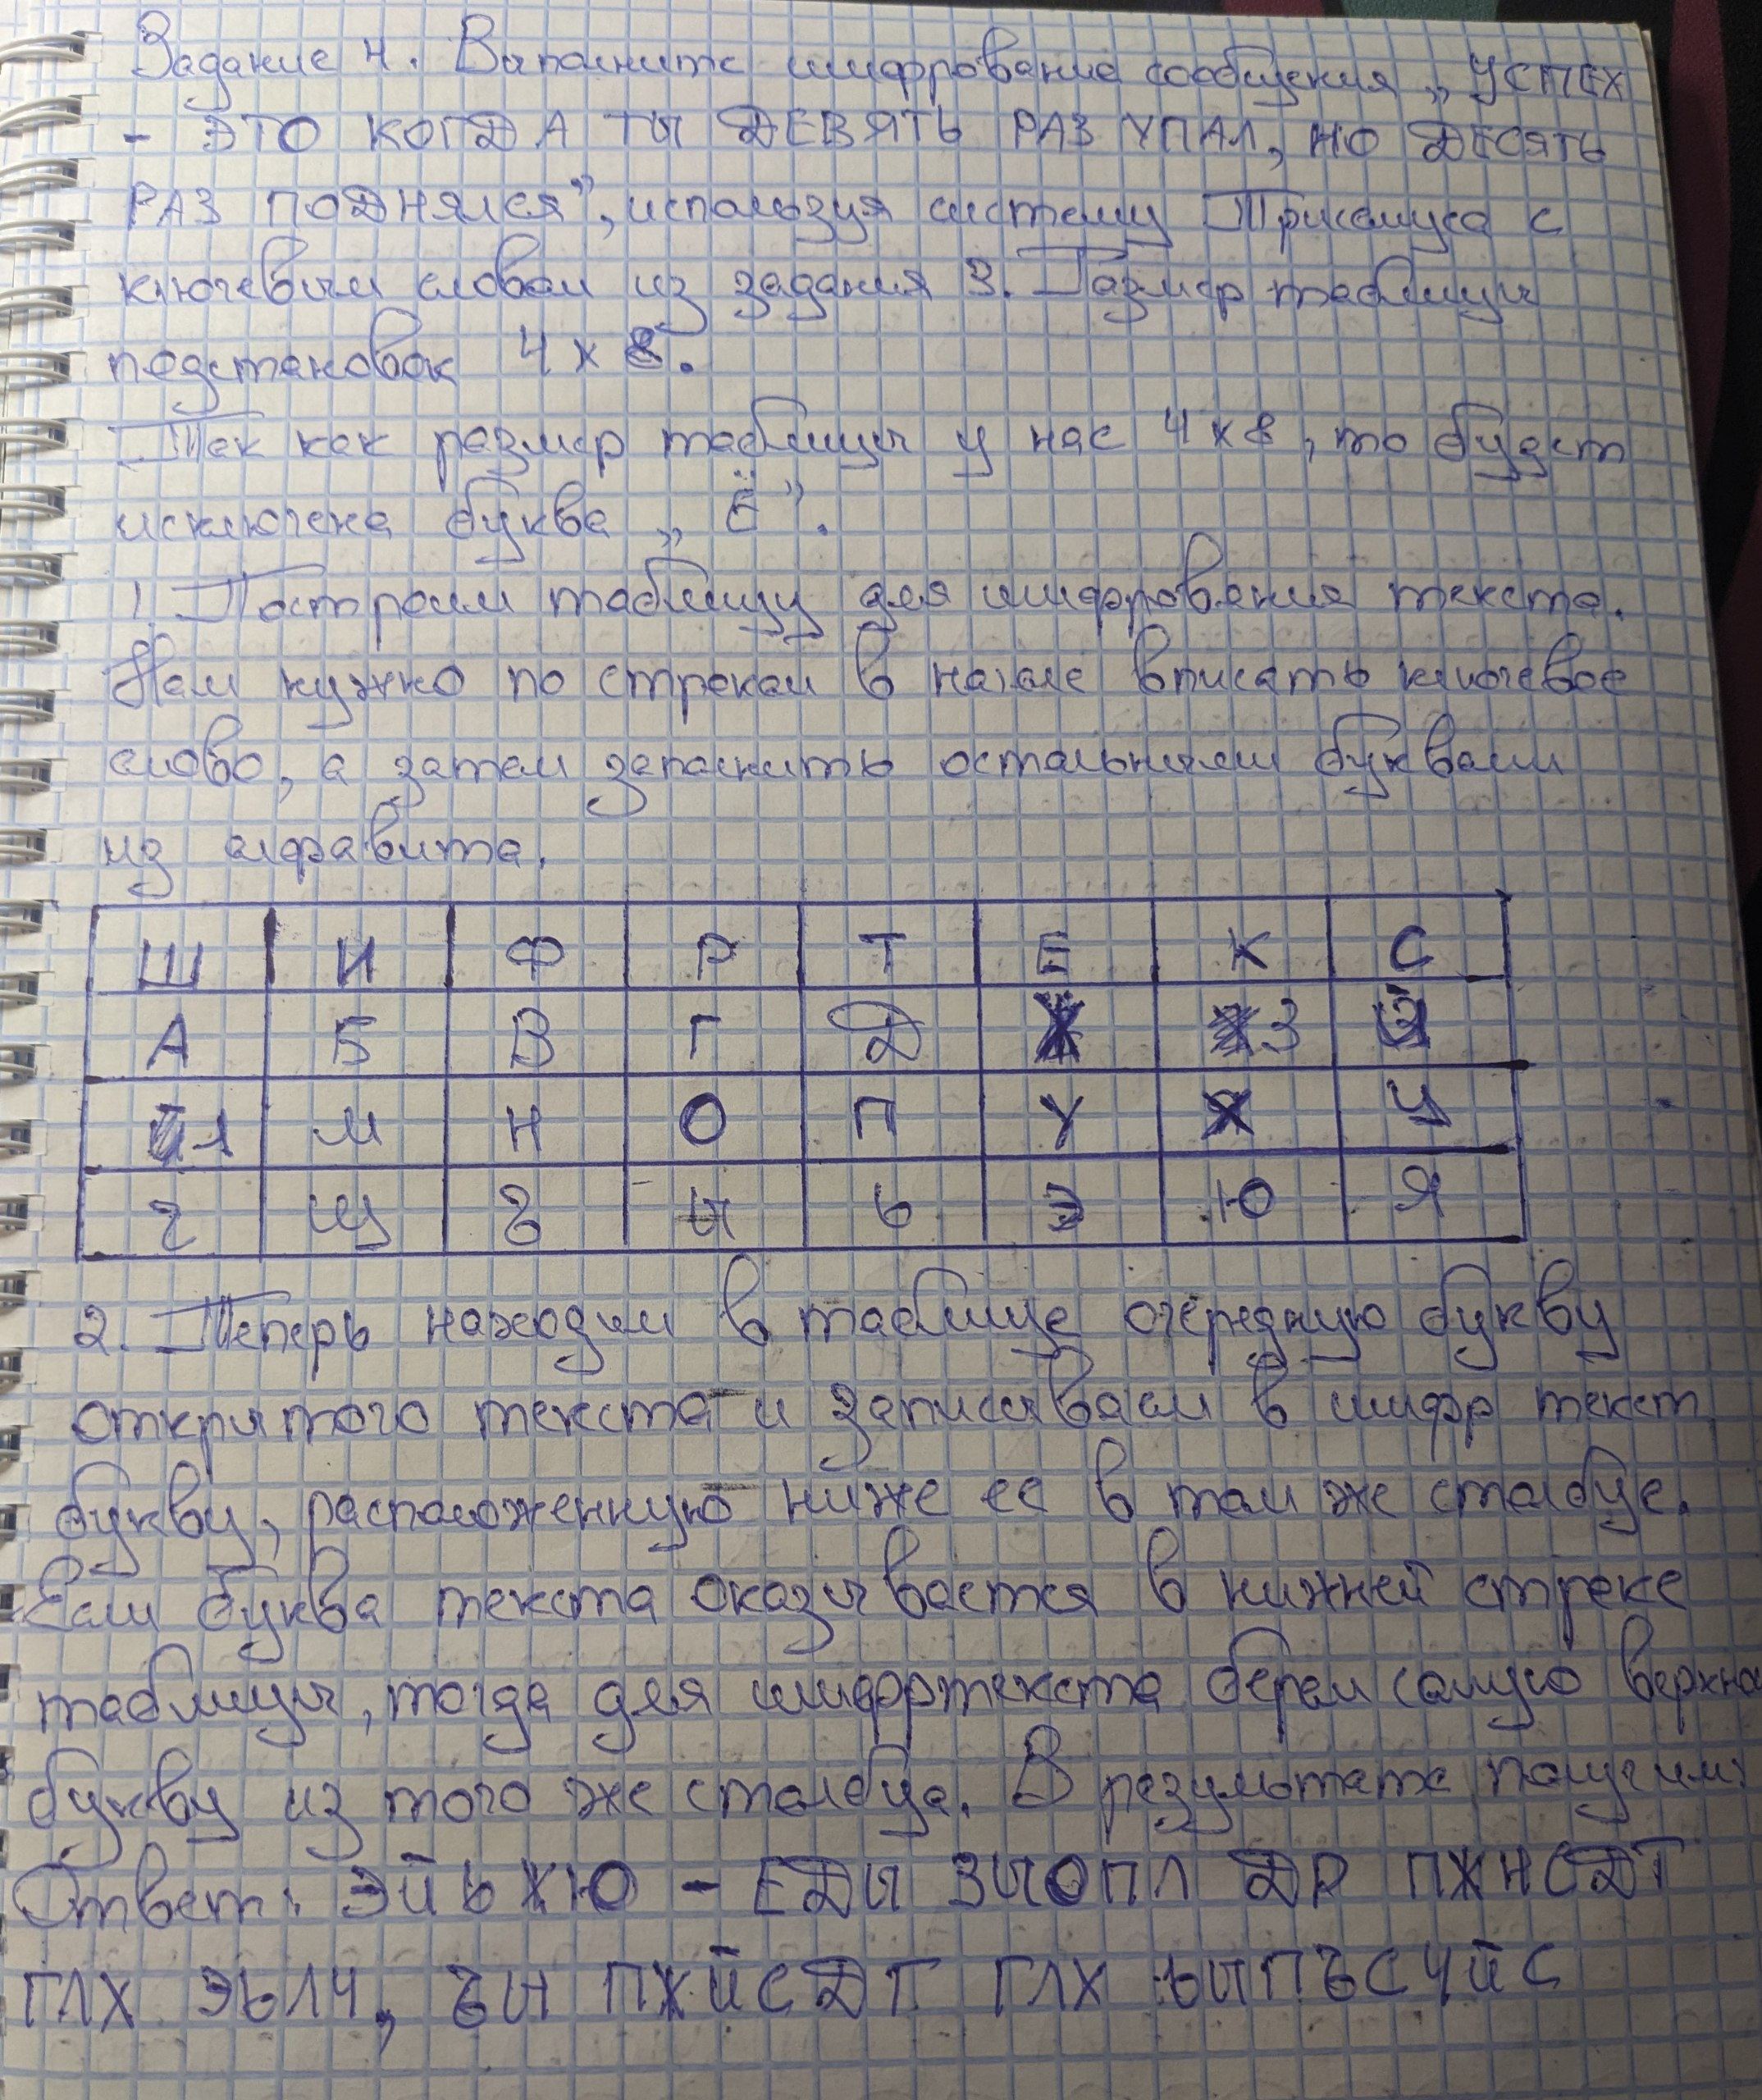 Задание 4. Выполните шифрование сообщения „УСПЕХ
- ЭТО КОГДА ТЫ ДЕВЯТЬ РАЗ УПАЛ, НО ДЕСЯТЬ
РАЗ ПОДНЯЛСЯ”, используя систему Трисемуса с
ключевым словом из задания 3. Размер таблицы
подстановок 4 х 8.
Так как размер таблицы у нас 4 х 8, то будет
исключена буква „Ё”.
1. Построим таблицу для шифрования текста.
Нам нужно по строкам в начале вписать ключевое
слово, а затем заполнить остальными буквами
из алфавита.
Ш И Ф Р Т Е К С
А Б В Г Д Ж З Й
Л М Н О П У Х Ц
Ч Щ Ъ Ы Ь Э Ю Я
2. Теперь находим в таблице очередную букву
открытого текста и записываем в шифр текст
букву, расположенную ниже ее в том же столбце.
Если буква текста оказывается в нижней строке
таблицы, тогда для шифртекста берем самую верхню
букву из того же столбца. В результате получим:
Ответ: ЭЙЬЖЮ - ЕДЫ ЗЫОПЛ ДР ПЖНСДТ
ГЛХ ЭЬЛЧ, ЪЫ ПЖЙСДТ ГЛХ ЬЫПЪСЧЙС